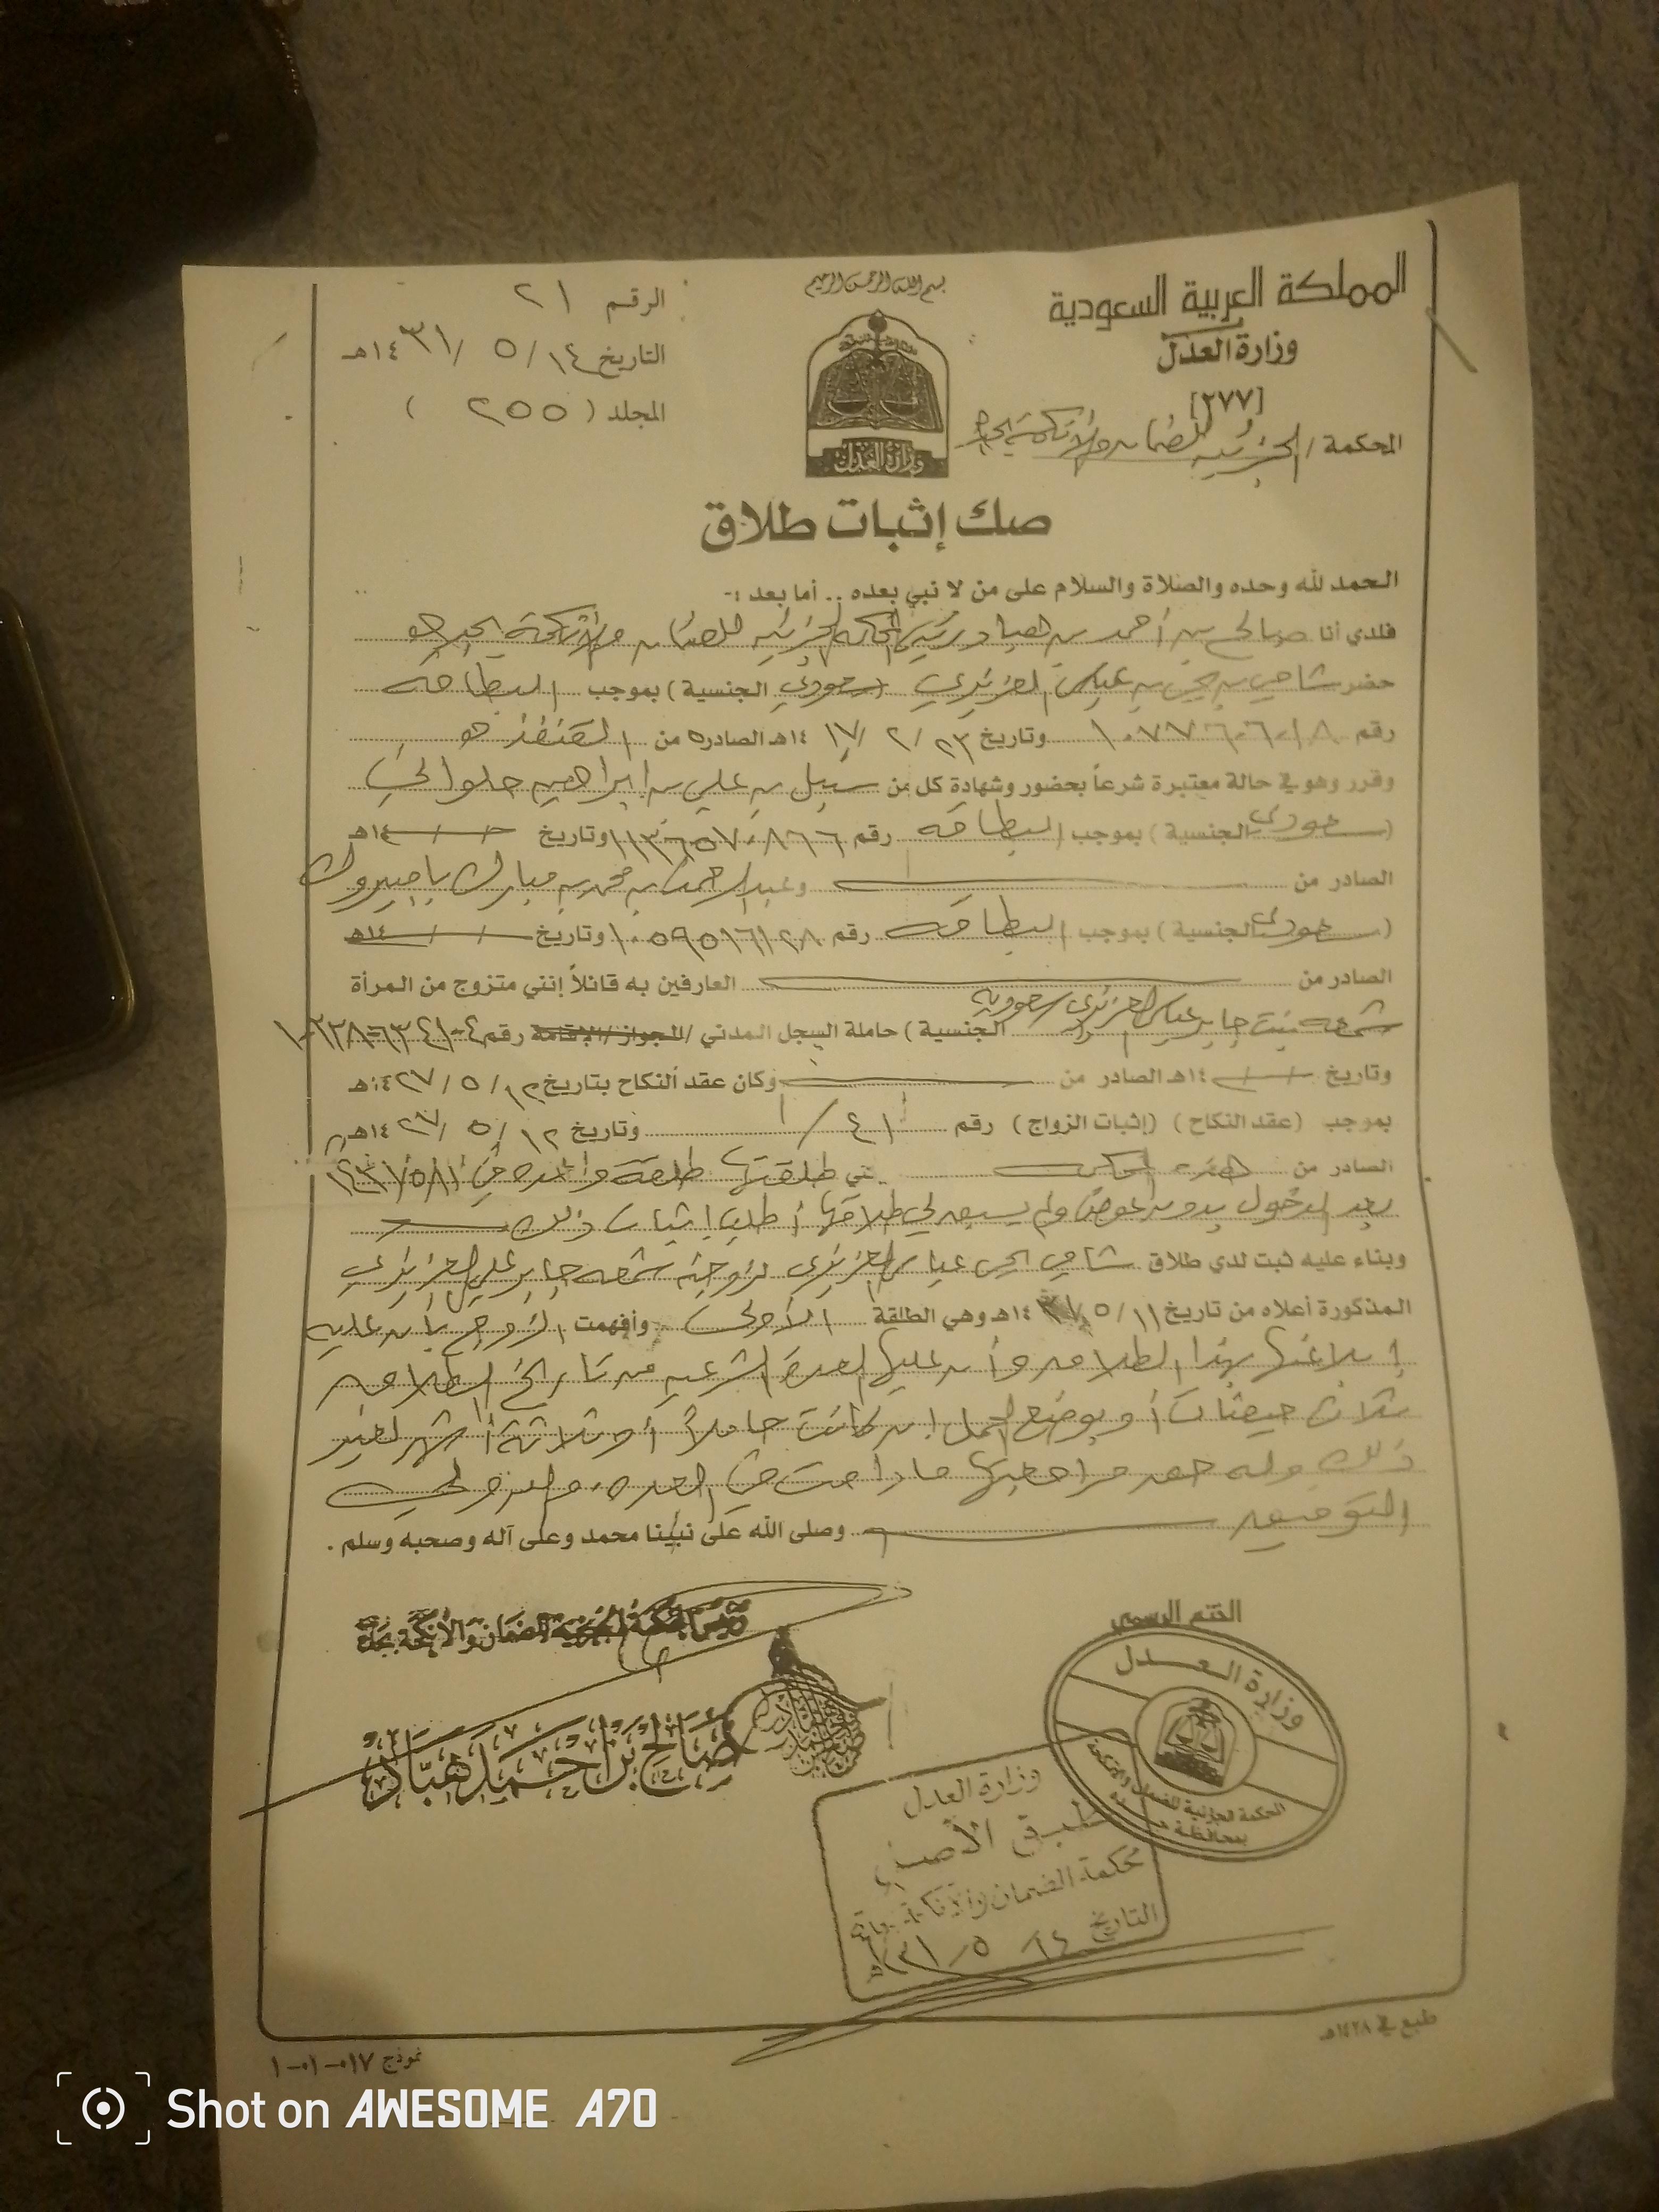 بسم الله الرحمن الرحيم
المملكة العربية السعودية
وزارة العدل
[٢٧٧]
المحكمة / الجزئية للضمان والأنكحة بجدة
الرقم ٢١
التاريخ ١٤ / ٥ / ١٤٣١هـ
المجلد ( ٢٥٥ )
وزارة العدل
صك إثبات طلاق
الحمد لله وحده والصلاة والسلام على من لا نبي بعده .. أما بعد :-
فلدي أنا صالح بن أحمد رئيس المحكمة الجزئية للضمان والأنكحة بجدة
حضر شامي بن يحيى بن عباس العزيزي ( سعودي الجنسية ) بموجب البطاقة
رقم وتاريخ ٢٣ / ٢ / ١٤١٧هـ الصادرة من القنفذة
وقرر وهو في حالة معتبرة شرعاً بحضور وشهادة كل من بن علي بن إبراهيم حلواني
( سعودي الجنسية ) بموجب البطاقة رقم وتاريخ / / ١٤هـ
الصادر من وعبدالرحمن بن محمد بن مبارك
( سعودي الجنسية ) بموجب البطاقة رقم ١٠٥٩٥١٦١٢٨ وتاريخ / / ١٤هـ
الصادر من العارفين به قائلاً إنني متزوج من المرأة
بنت جابر العزيزي سعودية الجنسية ) حاملة السجل المدني / للجواز / الإقامة رقم
وتاريخ / / ١٤هـ الصادر من وكان عقد النكاح بتاريخ ١٢ / ٥ / ١٤٢٧هـ
بموجب (عقد النكاح ) (إثبات الزواج ) رقم ٤١ / ١ وتاريخ ١٢ / ٥ / ١٤٢٧هـ
الصادر من هذه المحكمة طلقتها طلقة واحدة في
بعد الدخول بدون عوض ولم يسبق لي طلاقها أطلب إثبات ذلك
وبناء عليه ثبت لدي طلاق شامي يحيى عباس العزيزي لزوجته جابر العزيزي
المذكورة أعلاه من تاريخ ١١ / ٥ / ١٤هـ وهي الطلقة الأولى وأفهمت الزوج بأن عليه
إبلاغها بهذا الطلاق وأن عليها العدة الشرعية من تاريخ الطلاق
ثلاث حيضات أو بوضع الحمل إن كانت حاملاً أو ثلاثة أشهر لغير
ذلك وله حق مراجعتها مادامت في العدة والله ولي
التوفيق وصلى الله على نبينا محمد وعلى آله وصحبه وسلم .
رئيس المحكمة الجزئية للضمان والأنكحة بجدة
صالح بن أحمد
الختم الرسمي
وزارة العدل
المحكمة الجزئية للضمان والأنكحة
بمحافظة جدة
وزارة العدل
طبق الأصل
محكمة الضمان والأنكحة بجدة
التاريخ ١٤ / ٥ / ١٤٣١هـ
طبع في ١٤٢٨هـ
نموذج ٠١٧-٠١-١
Shot on AWESOME A70